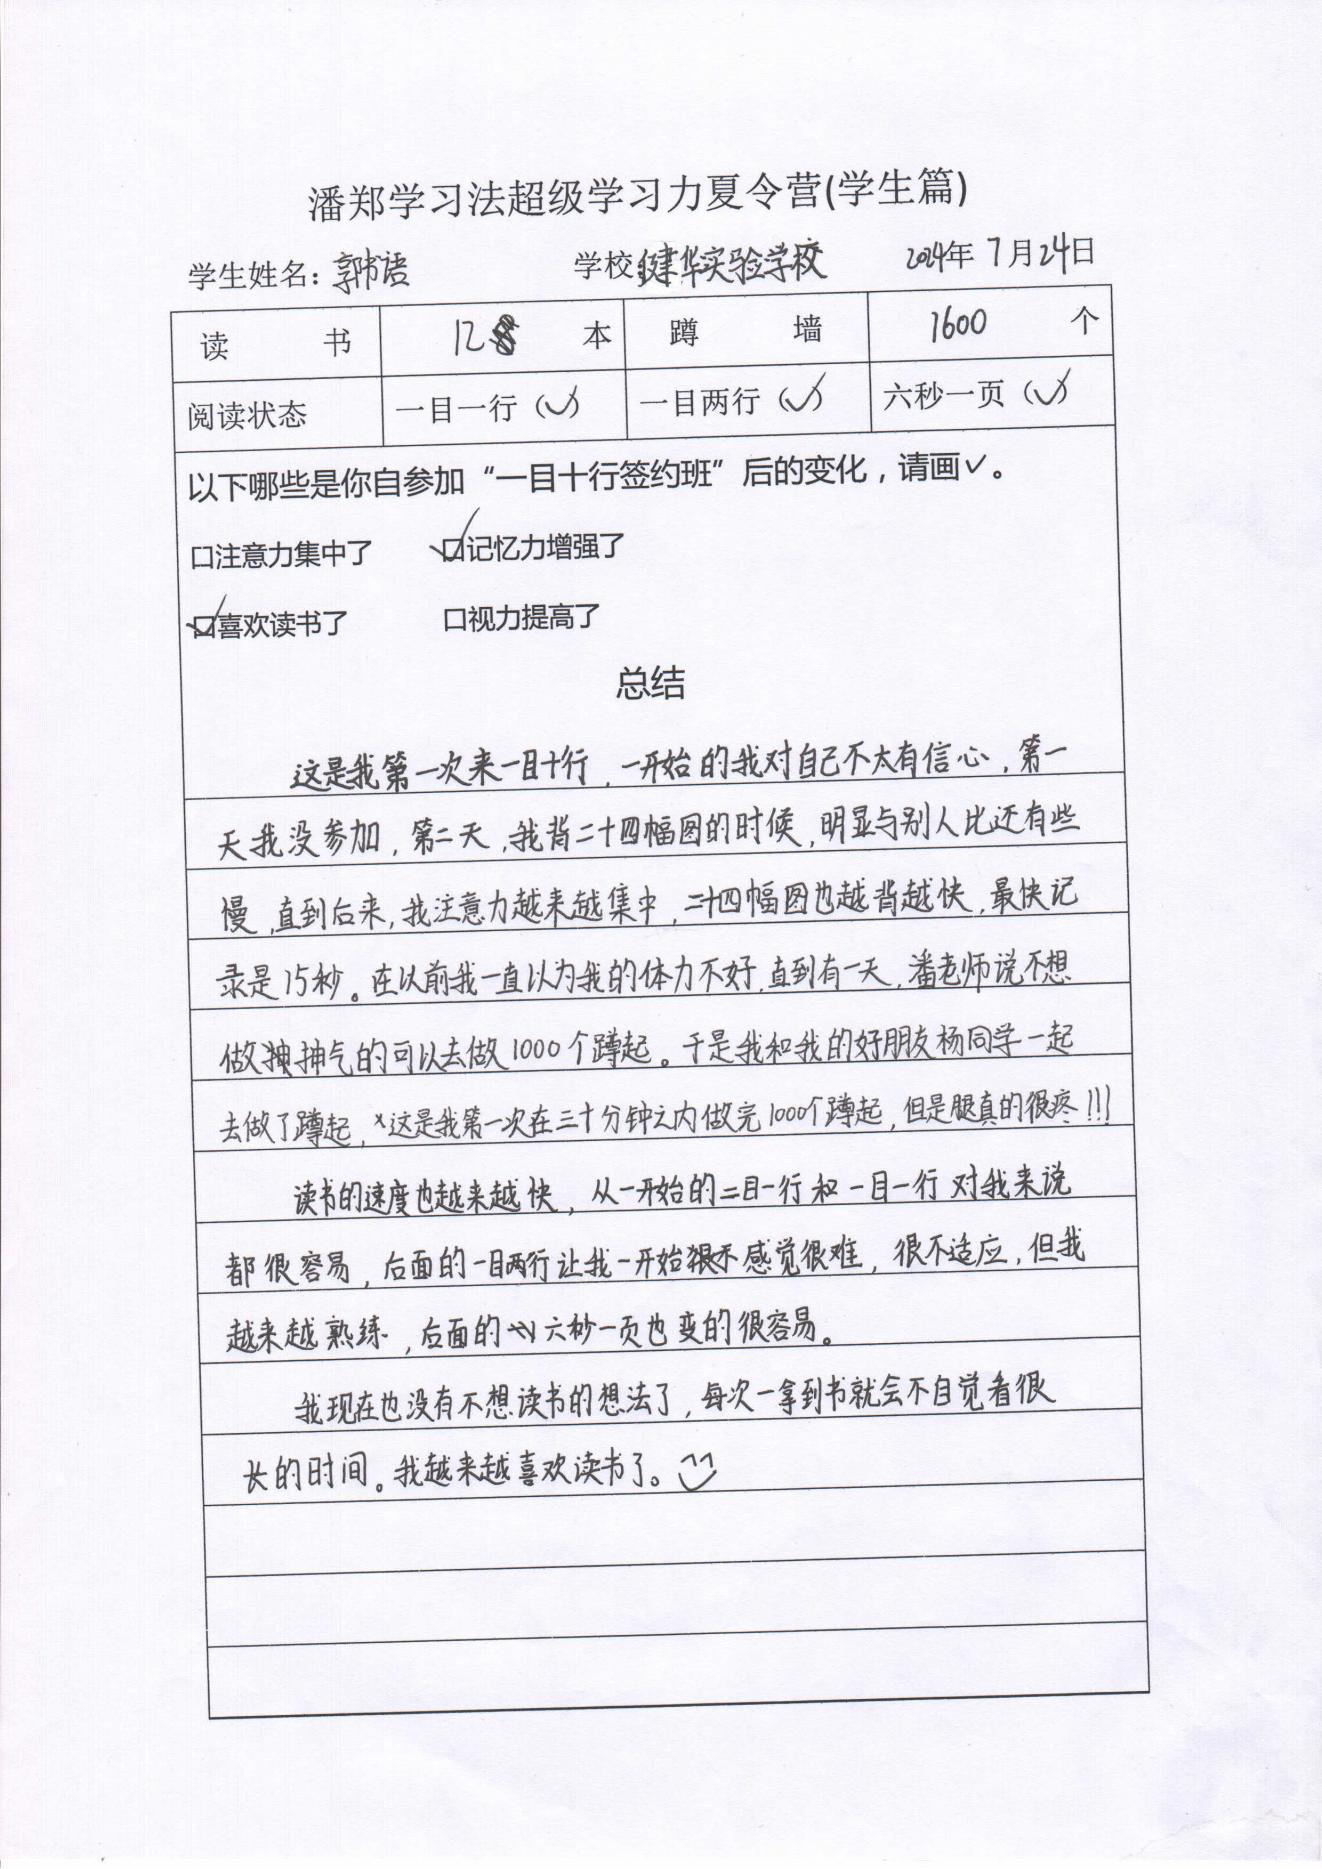 潘郑学习法超级学习力夏令营(学生篇)
学生姓名：郭书语 学校 健华实验学校 2024年 7月24日
读 书 12 本 蹲 墙 1600 个
阅读状态 一目一行（✓） 一目两行（✓） 六秒一页（✓）
以下哪些是你自参加“一目十行签约班”后的变化，请画✓。
口注意力集中了 ☑记忆力增强了
☑喜欢读书了 口视力提高了
总结
这是我第一次来一目十行，一开始的我对自己不太有信心，第一
天我没参加，第二天，我背二十四幅图的时候，明显与别人比还有些
慢，直到后来，我注意力越来越集中，二十四幅图也越背越快，最快记
录是15秒。在以前我一直以为我的体力不好，直到有一天，潘老师说不想
做抽气的可以去做1000个蹲起。于是我和我的好朋友杨同学一起
去做了蹲起，这是我第一次在三十分钟之内做完1000个蹲起，但是腿真的很疼!!!
读书的速度也越来越快，从一开始的二目一行和一目一行对我来说
都很容易，后面的一目两行让我一开始感觉很难，很不适应，但我
越来越熟练，后面的六秒一页也变的很容易。
我现在也没有不想读书的想法了，每次一拿到书就会不自觉看很
长的时间。我越来越喜欢读书了。